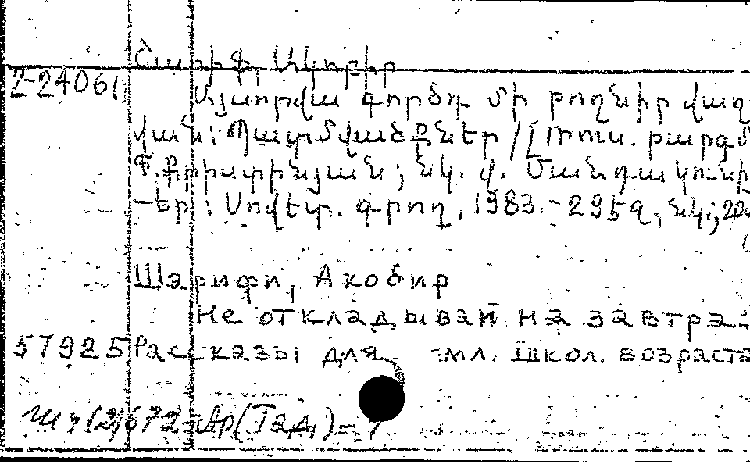 Շարիֆ, Ակոբիր
2-24061
Այսօրվա գործդ մի թողնիր վաղ
վան: Պատմվածքներ /[Ռուս. թարգմ
Փ. Քրիստինյան; նկ. Վ. Մանդակունի
-Եր.: Սովետ. գրող, 1983.- 295 զ, նկ.; 22
Шарифи, Акобир
Не откладывай на завтра.
57925 Рассказы для мл. школ. возраста
Ш (2)672 = Ар(Тадж)